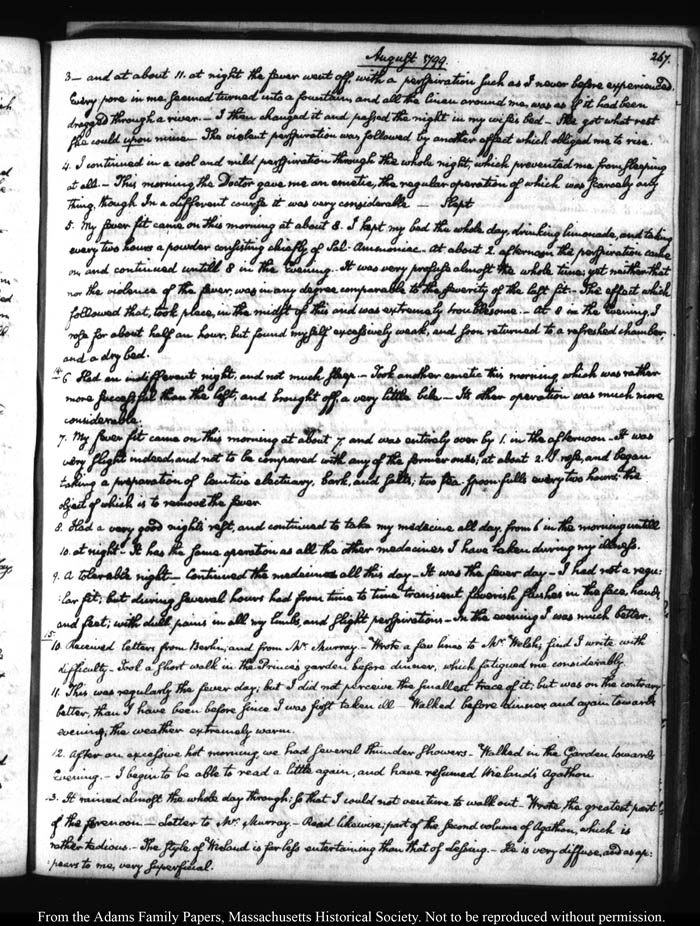 August 1799.
267.
3 - and at about 11. at night the fever went off, with a perspiration such as I never before experienced.
Every pore in me seemed turned into a fountain, and all the linen around me, was as if it had been
dragged through a river. - I then changed it and passed the night in my wife's bed - She got what rest
she could upon mine - The violent perspiration was followed by another effect which obliged me to rise.
4. I continued in a cool and mild perspiration through the whole night, which prevented me from sleeping
at all. - This morning the Doctor gave me an emetic, the regular operation of which was scarcely any
thing, though In a different course it was very considerable. - Slept
5. My fever fit came on this morning at about 8. I kept my bed the whole day, drinking limonade, and taking
every two hours a powder consisting chiefly of Sal-Ammoniac - At about 2 afternoon the perspiration came
on, and continued untill 8 in the Evening. It was very profuse almost the whole time; yet neither that
nor the violence of the fever, was in any degree comparable to the severity of the last fit. - The effect which
followed that, took place, in the midst of this and was extremely troublesome. - At 8 in the Evening, I
rose for about half an hour, but found myself excessively weak, and soon returned to a refreshed chamber,
and a dry bed.
14. 6 Had an indifferent night, and not much sleep - Took another emetic this morning which was rather
more successful than the last, and brought off a very little bile - Its other operation was much more
considerable.
7. My fever fit came on this morning at about 7 and was entirely over by 1. in the afternoon - It was
very slight indeed, and not to be compared with any of the former ones; at about 2. I rose, and began
taking a preparation of lenitive electuary, bark, and salts; two tea-spoonfulls every two hours; the
object of which is to remove the fever.
8. Had a very good night's rest, and continued to take my medecine all day, from 6 in the morning untill
10. at night - It has the same operation as all the other medecines I have taken during my illness.
9. A tolerable night - Continued the medecine all this day - It was the fever day - I had not a regu-
:lar fit; but during several hours had from time to time transient feverish flushes in the face, hands
and feet; with dull pains in all my limbs, and slight perspirations - In the evening I was much better.
15. 10. Received letters from Berlin; and from Mr. Murray - Wrote a few lines to Mr. Welsh; find I write with
difficulty - Took a short walk in the Prince's garden before dinner, which fatigued me considerably.
11. This was regularly the fever day; but I did not perceive the smallest trace of it; but was on the contrary
better, than I have been before since I was first taken ill - Walked before dinner, and again towards
evening; the weather extremely warm.
12. After an excessive hot morning, we had several thunder showers - Walked in the Garden towards
Evening. - I begin to be able to read a little again; and have resumed Wieland's Agathon.
3. It rained almost the whole day through; so that I could not venture to walk out - Wrote, the greatest part
of the forenoon - Letter to Mr. Murray - Read likewise, part of the second volume of Agathon, which is
rather tedious. - The style of Wieland is far less entertaining than that of Lessing - He is very diffuse, and as ap-
:pears to me, very superficial.
From the Adams Family Papers, Massachusetts Historical Society. Not to be reproduced without permission.